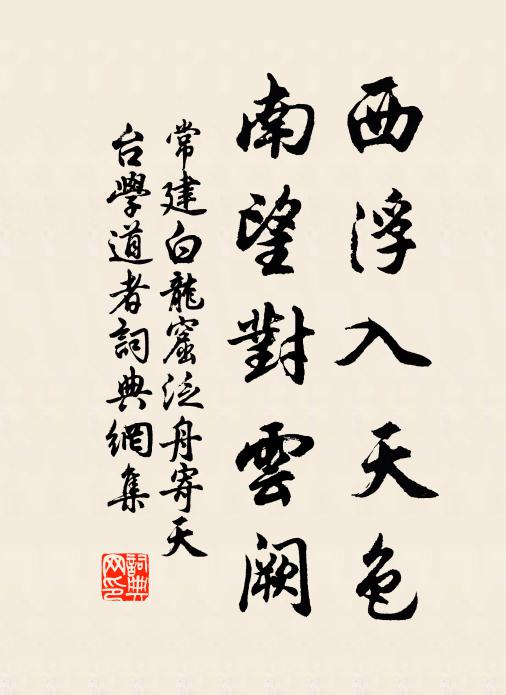 西浮入天色
南望對雲闕
常建白龍窟泛舟寄天
台學道者詞典網集
詞典網印